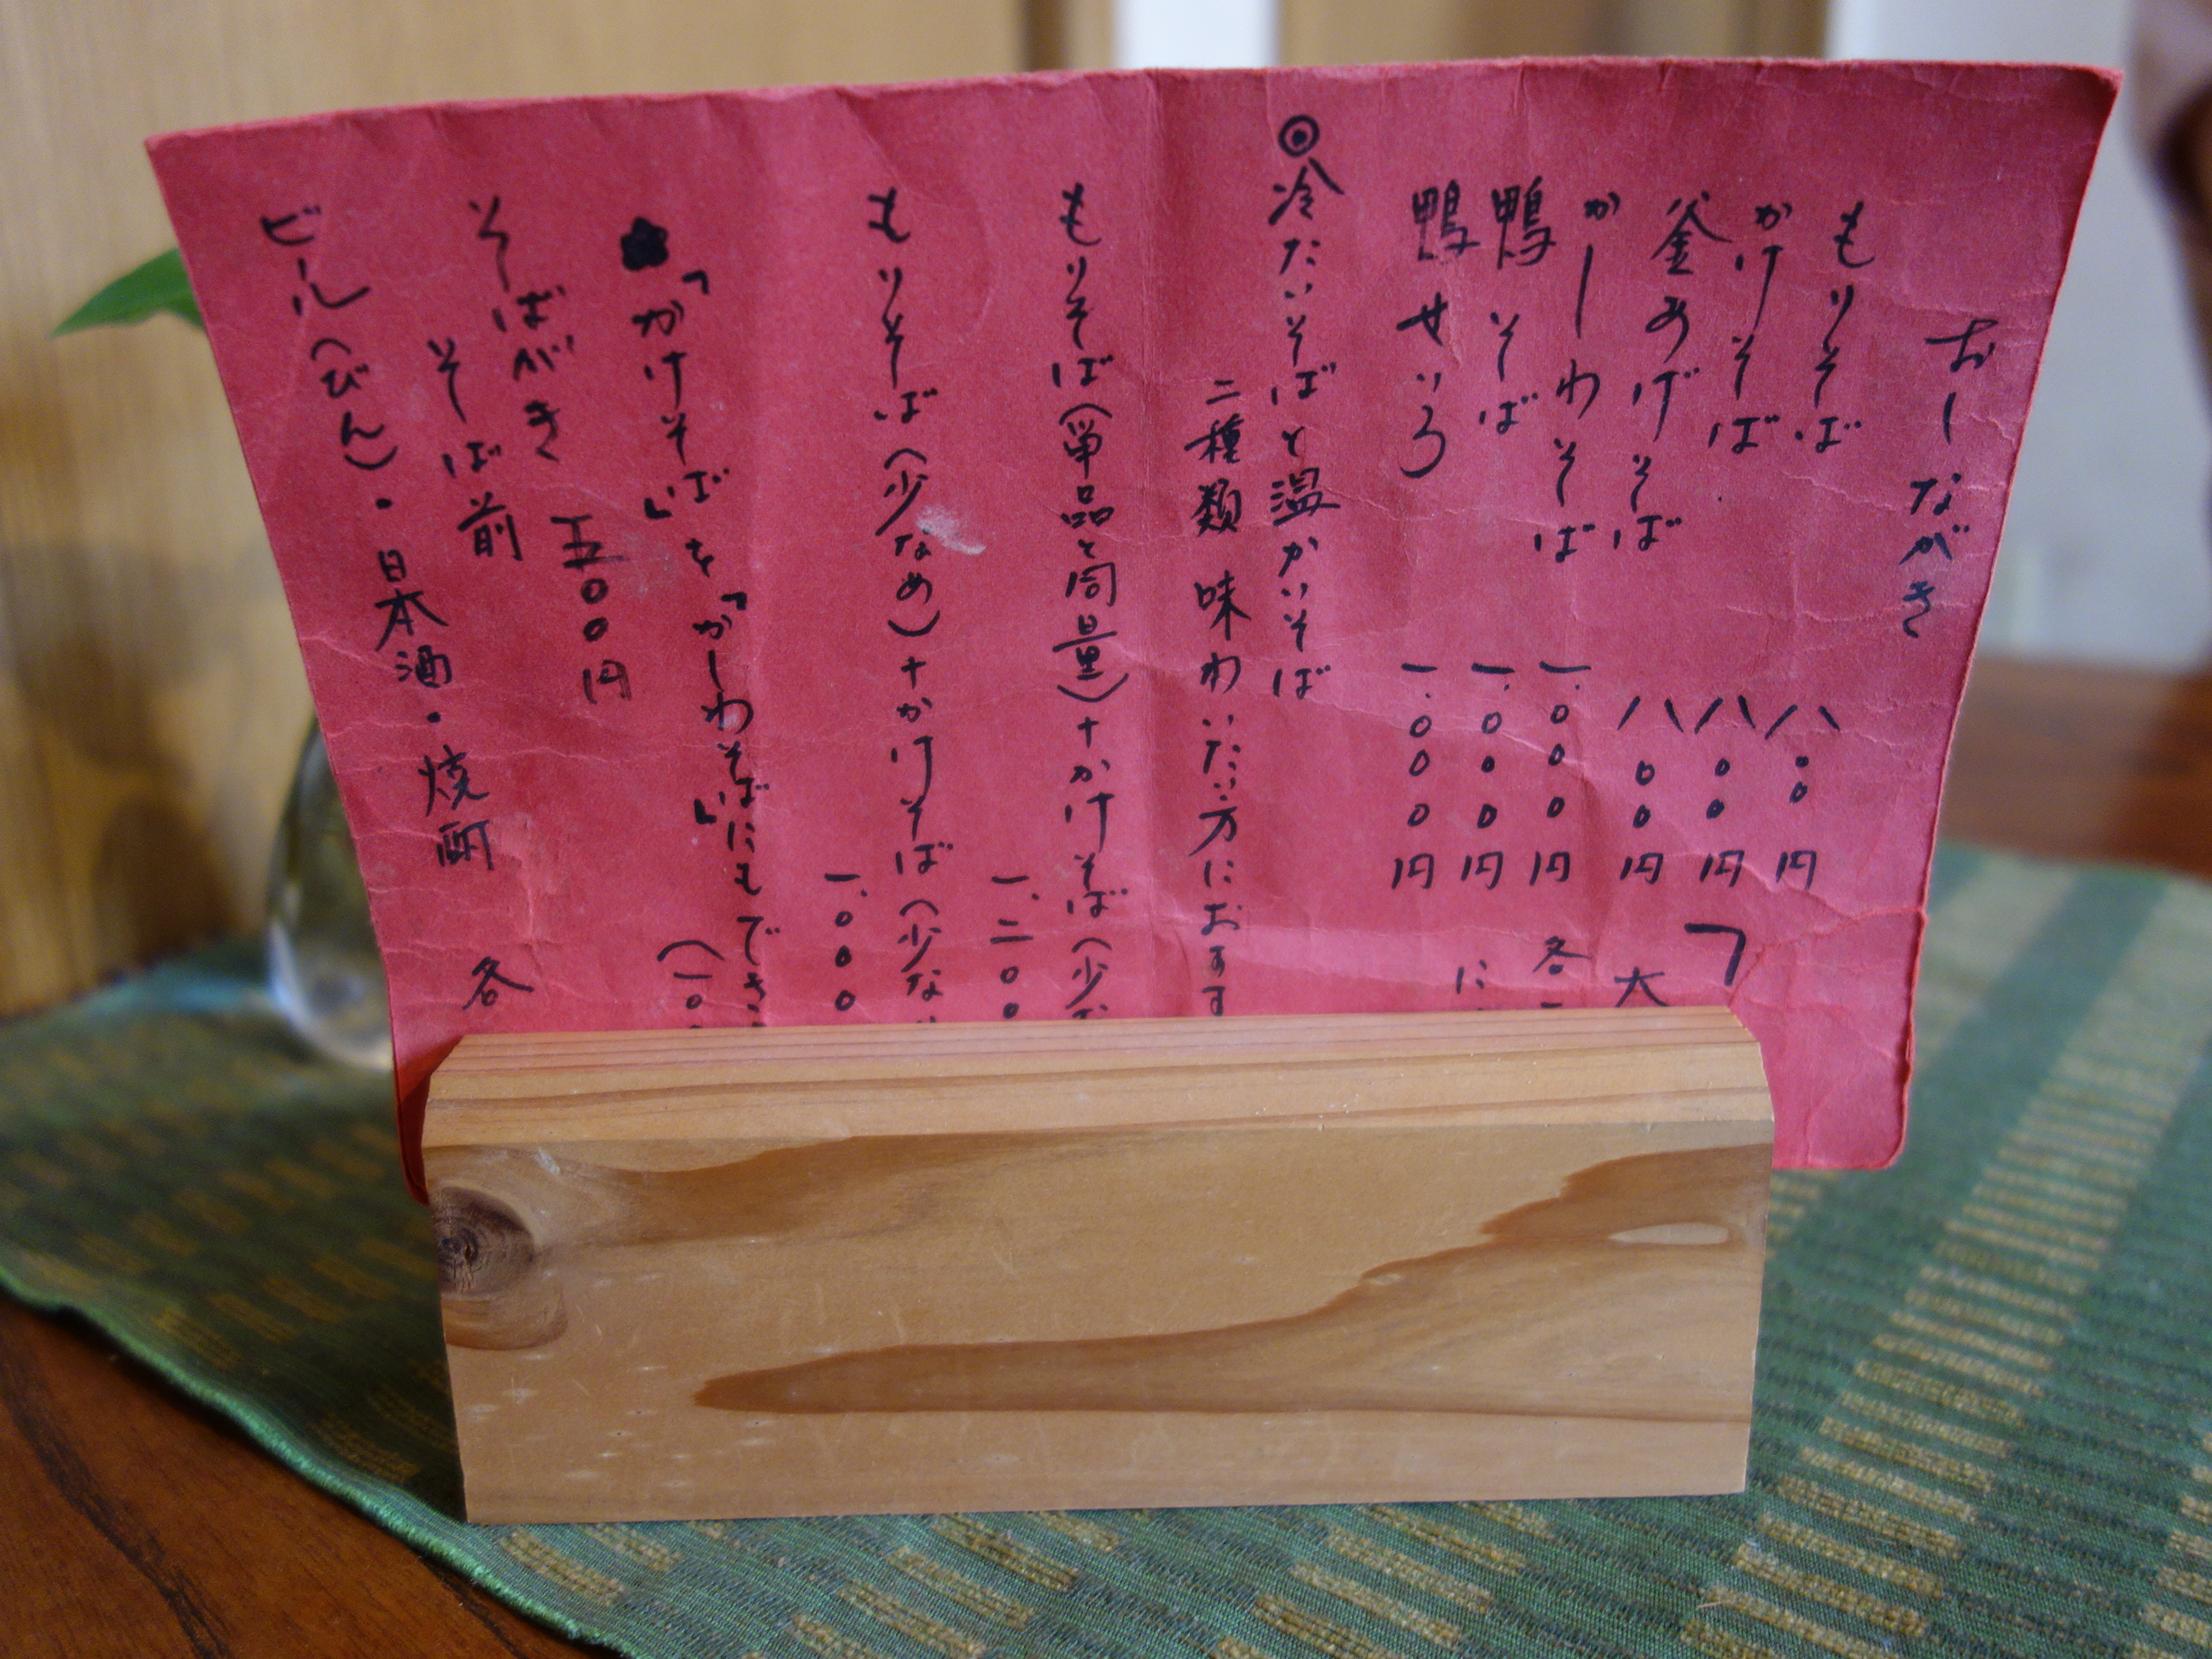 おしながき
もりそば 八〇〇円
かけそば 八〇〇円
釜あげそば 八〇〇円
かしわそば 一、〇〇〇円
鴨そば 一、〇〇〇円
鴨せいろ 一、〇〇〇円
大
各
に
◎冷たいそばと温かいそば
二種類味わいたい方におすす
もりそば(単品と同量)+かけそば(少な
一、二〇〇
もりそば(少なめ)+かけそば(少な
一、〇〇〇
「かけそば」を「かしわそば」にもでき
(一〇
そばがき 五〇〇円
そば前
ビール(びん)・日本酒・焼酎 各